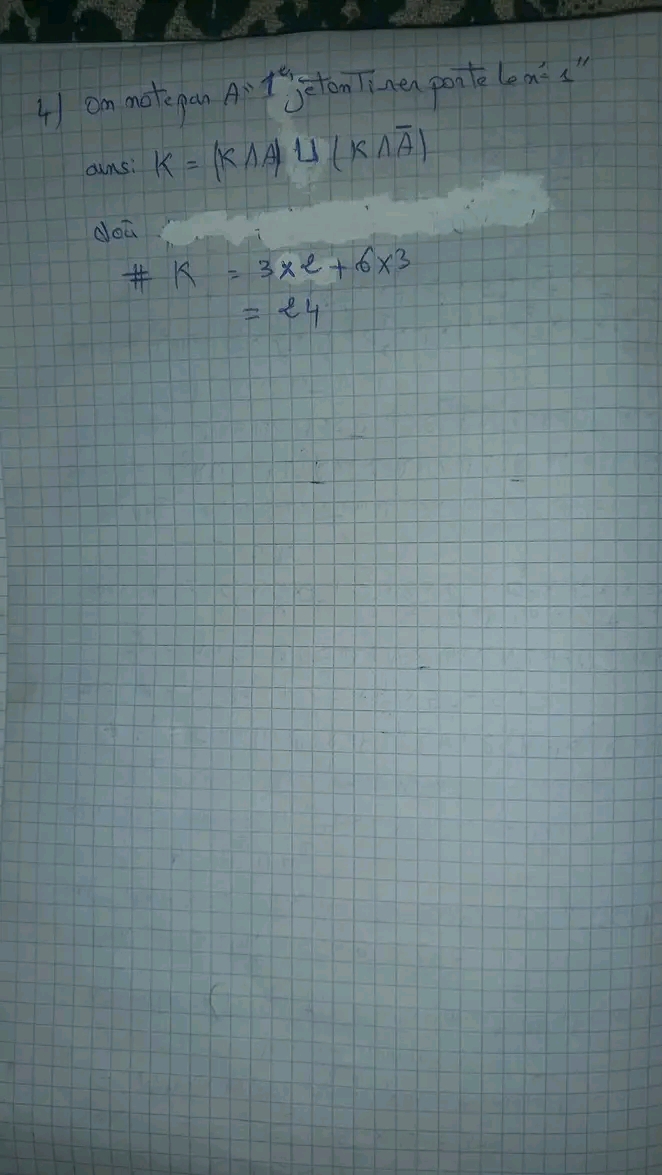 4) On note par A " 1er jeton tirer porte le n° 1 "
ainsi K = (K ∩ A) ⊔ ( K ∩ Ā )
doù
# K = 3 x 2 + 6 x 3
= 24